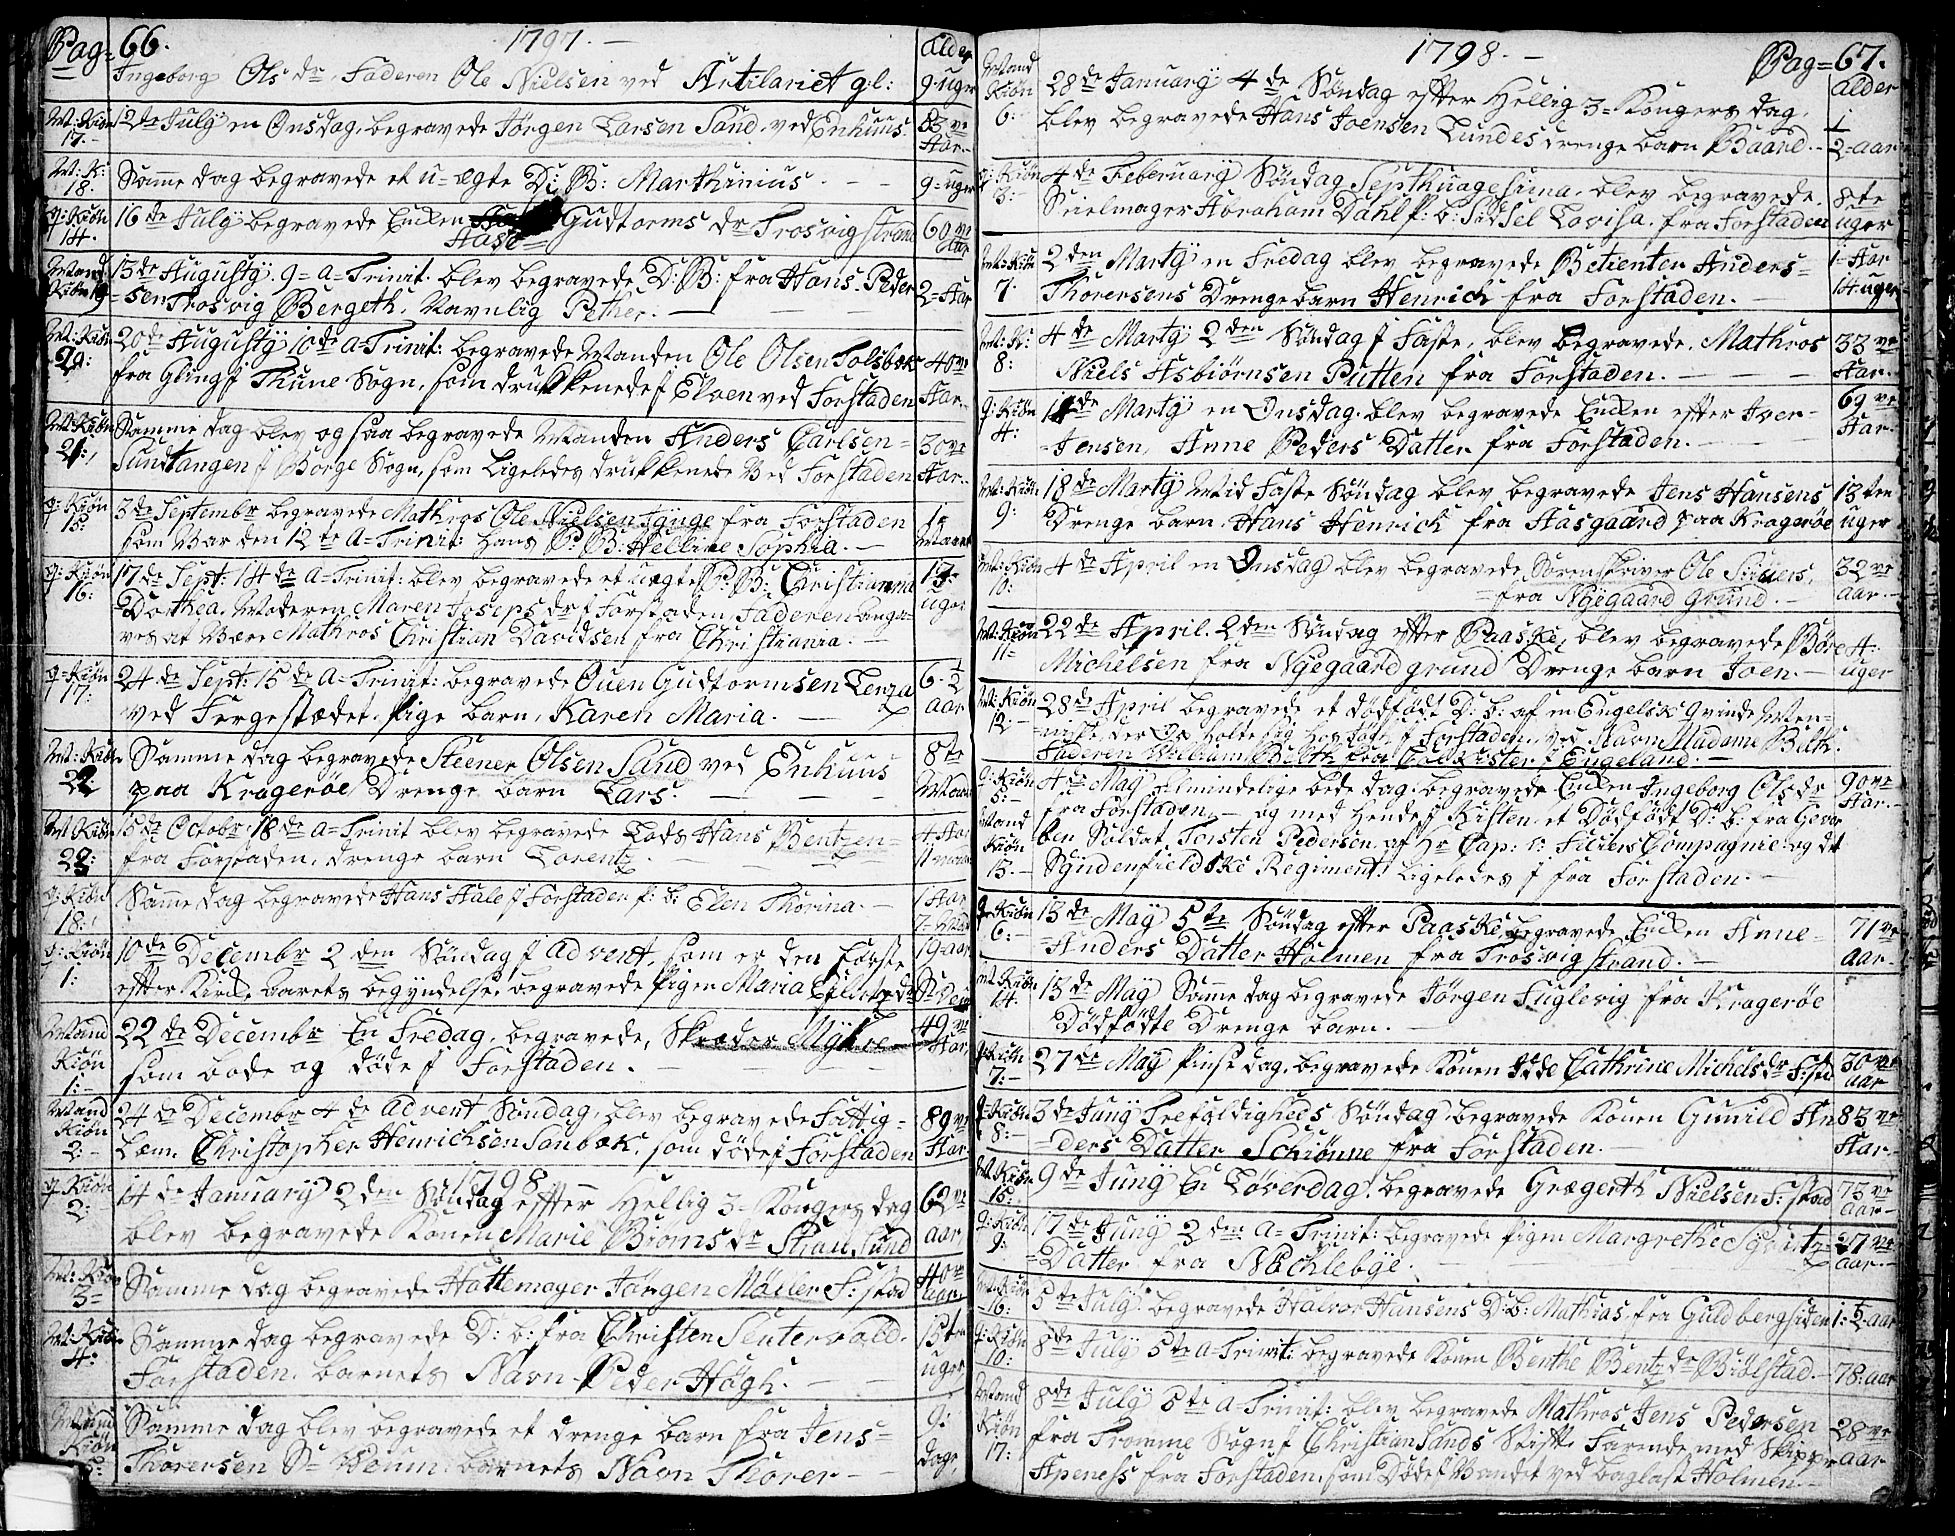 Pag= 66. 1797. — Alder
Ingeborg Ols dr. Faderen Ole Nielsen ved Artilariet gl: 9 uger
M: Kiön 17.- 12de Julÿ en Onsdag, begravede Jörgen Larsen Sand, ved Enhuus- 83 ve Aar.-
M: K: 18. Samme dag begravede et u-ægte D: B: Marthinius. - - 9= uger
q: Kiön 14. 16de Julÿ begravede Enken Aase Gudtorms dr Trosvigstrand 60 ve Aar
Mand Kiön 19 13de Augustÿ. 9= a= Trinit. blev begravede D: B: fra Hans Peder 2= Aar
=sen Trosvig Bergeth. Navnlig Pether. —
M: Kiön 20: 20de Augustÿ 10de a= Trinit: begravede Manden Ole Olsen Tolsbek 40 ve
fra Gling i Thune Sogn, som drukkenede i Elven ved Forstaden Aar.-
M: Kiön 21. Samme dag blev og saa begravede Manden Anders Carlsen= 30 ve
Sundtangen i Borge Sogn, som Ligeledes drukkenede Ved Forstaden Aar.-
q: Kiön 15: 3de Septembr begravede Mathros Ole Nielsen fra Forstaden
som Var den 12te a= Trinit: hans P: B: Helline Sophia. —
q: Kiön 16: 17de Sept: 14de a= Trinit: blev begravede et uægte P: B: Christianna uger
Dorthea, Moderen Maren Joseps dr i Forstaden, Faderen anga=
ves at Være Mathros Christian Davidsen fra Christiania —
q= Kiön 17: 24de Sept: 15de a= Trinit: begravede Ouen Gudtormsen Lenza 6 1/2
ved Fergestædet. Pige barn, Karen Maria. — aar
M: Kiön 22 Samme dag begravede Steener Olsen Sand ved Enhuus 8te
paa Kragerøe Drenge barn Lars. — Maan
M: Kiön 15de Octobr 18de a= Trinit blev begravede Lods Hans Bentzen= 4 Aar
fra Forstaden, drenge barn Lorentz.
q: Kiön 18: Samme dag begravede Hans Hale i Forstaden p: b: Elen Thorina. — 1 Aar
q: Kiön 1: 10de Decembr 2den Söndag i Advent, som er den første 19 aar
efter Kirke Aarets begyndelse, begravede Pigen Maria
Mand Kiön 1:- 22de Decembr En Fredag, begravede, Skræder Mÿhre 49 ve Aar
som bode og döde i Forstaden. —
Mand Kiön 2:- 24de Decembr 4de Advent Söndag, blev begravede Fattig= 89 ve
Lem Christopher Henrichsen Sanbæk, som döde i Forstaden Aar.
1798
q: Kiön 2: 14de Januarÿ 2den Söndag effter Hellig 3= Kongers dag 62 ve
blev begravede Konen Marie Biörns dr Strau Sund aar
M: Kiön 3= Samme dag begravede Hattemager Jörgen Möller F: stad 40 ve aar
M: Kiön 4: Samme dag begravede D: b: fra Christen Sluterwold. 15ten
Forstaden, barnets Navn Peder Högh. uger
Mand Kiön 5: Samme dag blev begravede et drenge barn fra Jens= 9:
Thorersen barnets Navn Thorer — dage
1798. — Pag= 67. Alder
Mand Kiön 6: 28de Januarÿ 4de Söndag efter Hellig 3= Kongers dag,
blev begravede Hans Joensen Lundes drenge barn Baard. - 1/2= aar
q: Kiön 3: 4de Februarÿ Söndag Septhuagesima. blev begravede 8te
Seielmager Abraham Dahl p: b: Sidsel Lovisa. fra Forstaden uger
M: Kiön 7: 2den Martÿ en Fredag blev begravede Betienten Anders= 1= Aar
Thorersens Drengebarn Henrich fra Forstaden. — 14 uger
M: K: 8: 4de Martÿ 2den Söndag i Faste, blev begravede, Mathros 33 ve
Niels Asbiörnsen Putten fra Forstaden. — Aar.
q: Kiön 4: de Martÿ en Onsdag blev begravede Enken efter Iver= 69 ve Aar.
=Jensen, Anne Peders Datter fra Forstaden. —
M: Kiön 9: 18de Martÿ Mid Faste Söndag blev begravede Jens Hansens 13 ten
Drenge barn Hans Henrich fra Aasgaard paa Kragerøe uger
M: Kiön 10: 4de April en Onsdag blev begravede Sorenskriver Ole 32 ve
fra Nÿegaard Grund. - aar.-
M: Kiön 11= 22de April. 2den Söndag efter Paaske, blev begravede Böre 4-
Michelsen fra Nÿegaard grund Drenge barn Joen. - uger
M: Kiön 12.- 28de April begravede et dödfödt D: b: af en Engelsk Qvinde Men=
niske, der i Forstaden, ved Navn Madame Bilth.
Faderen William Bilth fra i Engeland. —
q: Kiön 5:- 4de Maÿ Almindelige bede dag, begravede Enken Ingeborg Ols dr 90 ve Aar.
fra Forstaden, — og med hende i Kisten et Dödfödt D: b: fra Gevor
Mand Kiön 13.- ben Soldat Torsten Pedersen af Hr Cap: Compagnie og det
Sÿndenfieldske Regiment! Ligeledes i fra Forstaden. —
q: Kiön 6:- 13de Maÿ 5te Söndag efter Paaske, begravede Enken Anne= 71 ve
=Anders Datter Holmen fra Trosvig Strand. — aar.
M: Kiön 14. 13de Maÿ Samme dag begravede Jörgen Fuglevig fra Kragerøe
Dödfödte Drenge barn. —
q: Kiön 7:- 27de Maÿ Pinse dag, begravede Konen Edde Cathrine Michels dr F: stad 30 ve aar
q: Kiön 8:- 3de Junÿ Trefoldigheds Söndag, begravede Konen Gunild An 83 ve
=ders Datter Schiönne fra Forstaden. Aar.-
M: Kiön 15: 9de Junÿ En Löverdag! begravede Grægerth Nielsen F: stad 73 ve aar.-
q: Kiön 9: 17de Junÿ 2den a= Trinit: begravede pigen Margrethe 27 ve
=Datter fra Nöchlebÿe. aar.-
M: Kiön 16: 5te Julÿ: begravede Halvor Hansens D: b: Mathias, fra Guldbergsiden 1: 1/2 aar
q: Kiön 10: 8de Julÿ 5te a= Trinit: begravede Konen Benthe Bentz dr Biölstad. - 78: aar
Mand Kiön 17: 8de Julÿ 5te a= Trinit: blev begravede Mathros Jens Pedersen 28 ve
fra Tromme Sogn i Christiansands Stift. Farende med Skipper aar
Apeness fra Forstaden, som Döde i Vandet ved baglast Holmen. —